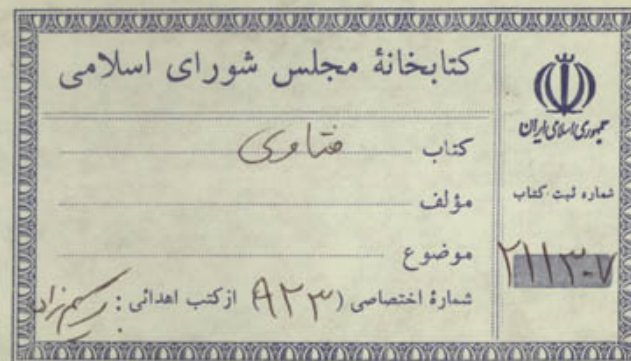 کتابخانهٔ مجلس شورای اسلامی
کتاب فتاوی
مؤلف
موضوع
شمارهٔ اختصاصی (۹۲۳) از کتب اهدائی:
جمهوری اسلامی ایران
شماره ثبت کتاب
۲۱۱۳۰۷